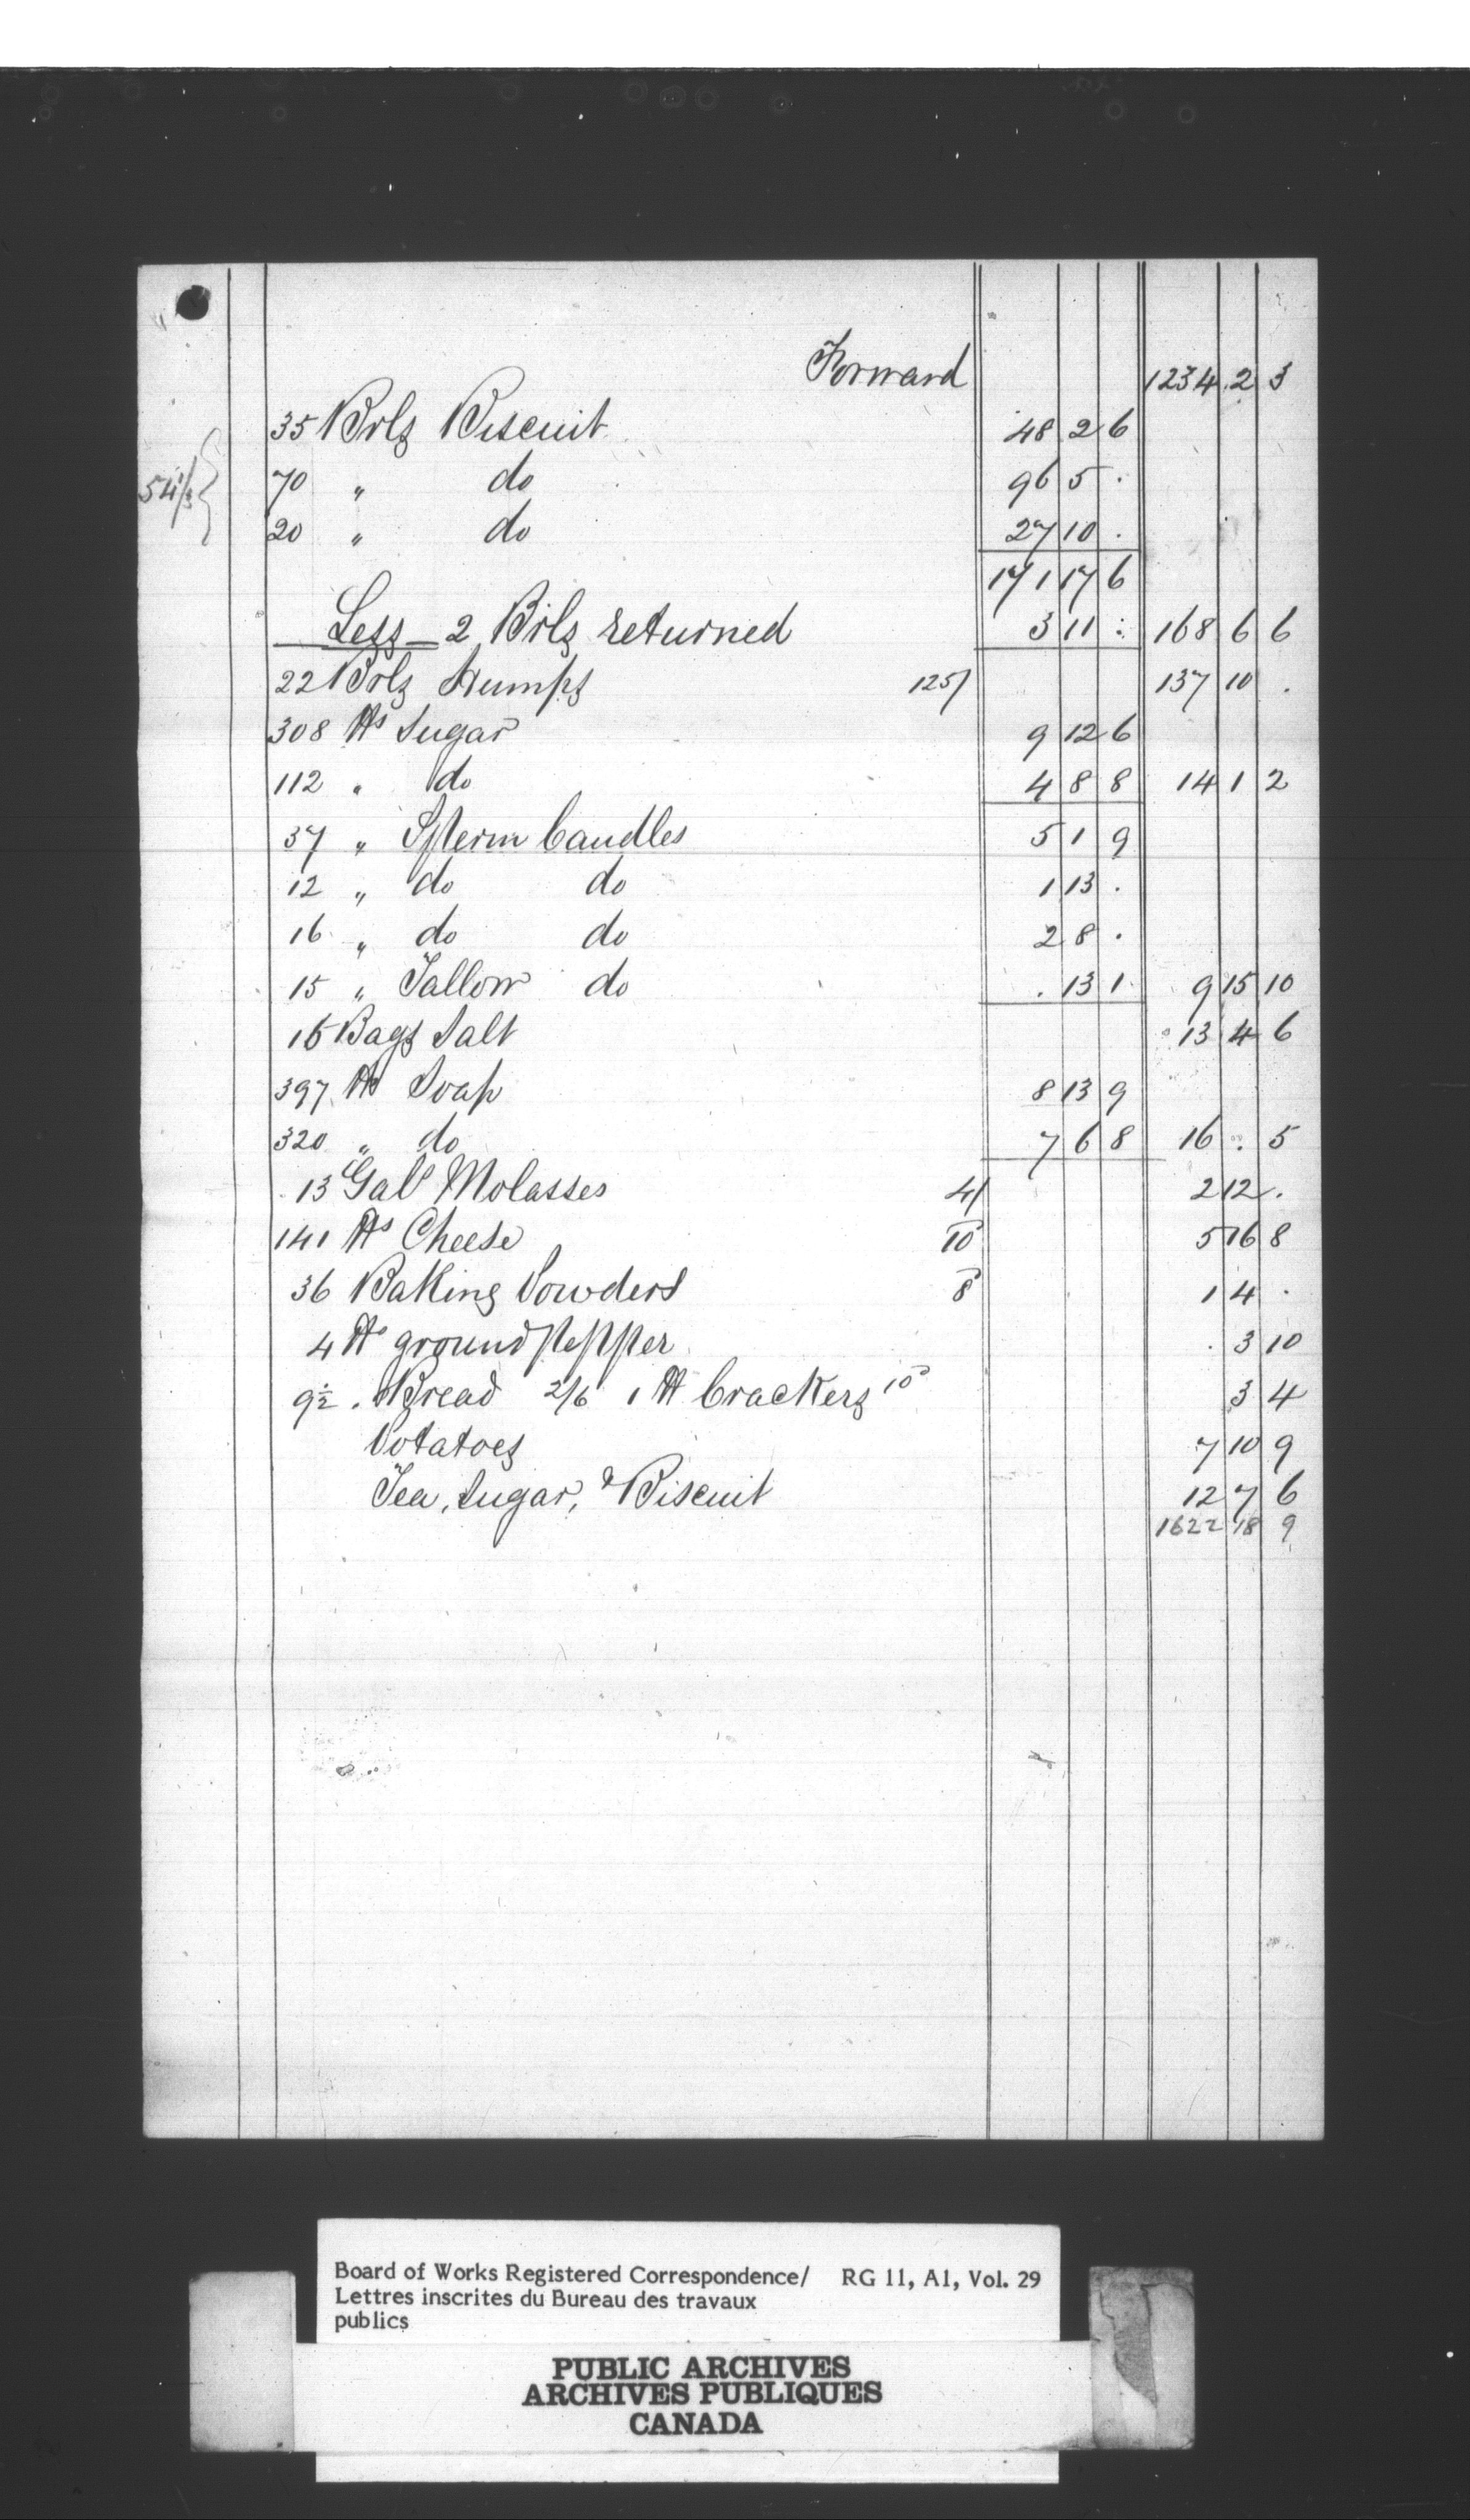 Forward 1234 2 3
35 Brls Biscuit 48 2 6
54/ 70 " do 96 5 .
20 " do 27 10 .
171 17 6
Less - 2 Brls returned 3 11 : 168 6 6
22 Brls Humps 125/ 137 10 .
308 lbs Sugar 9 12 6
112 " do 4 8 8 14 1 2
37 " Sperm Candles 5 1 9
12 " do do 1 13 .
16 " do do 2 8 .
15 " Tallow do . 13 1 9 15 10
16 Bags Salt 13 4 6
397 lbs Soap 8 13 9
320 " do 7 6 8 16 . 5
13 Gals Molasses 4/ 2 12 .
141 lbs Cheese 10d 5 16 8
36 Baking Powders 8d 1 4 .
4 lbs ground pepper . 3 10
9½ . Bread 2/6 1 lb Crackers 10d 3 4
Potatoes 7 10 9
Tea, Sugar, & Biscuit 12 7 6
1622 18 9
Board of Works Registered Correspondence/ RG 11, A1, Vol. 29
Lettres inscrites du Bureau des travaux
publics
PUBLIC ARCHIVES
ARCHIVES PUBLIQUES
CANADA